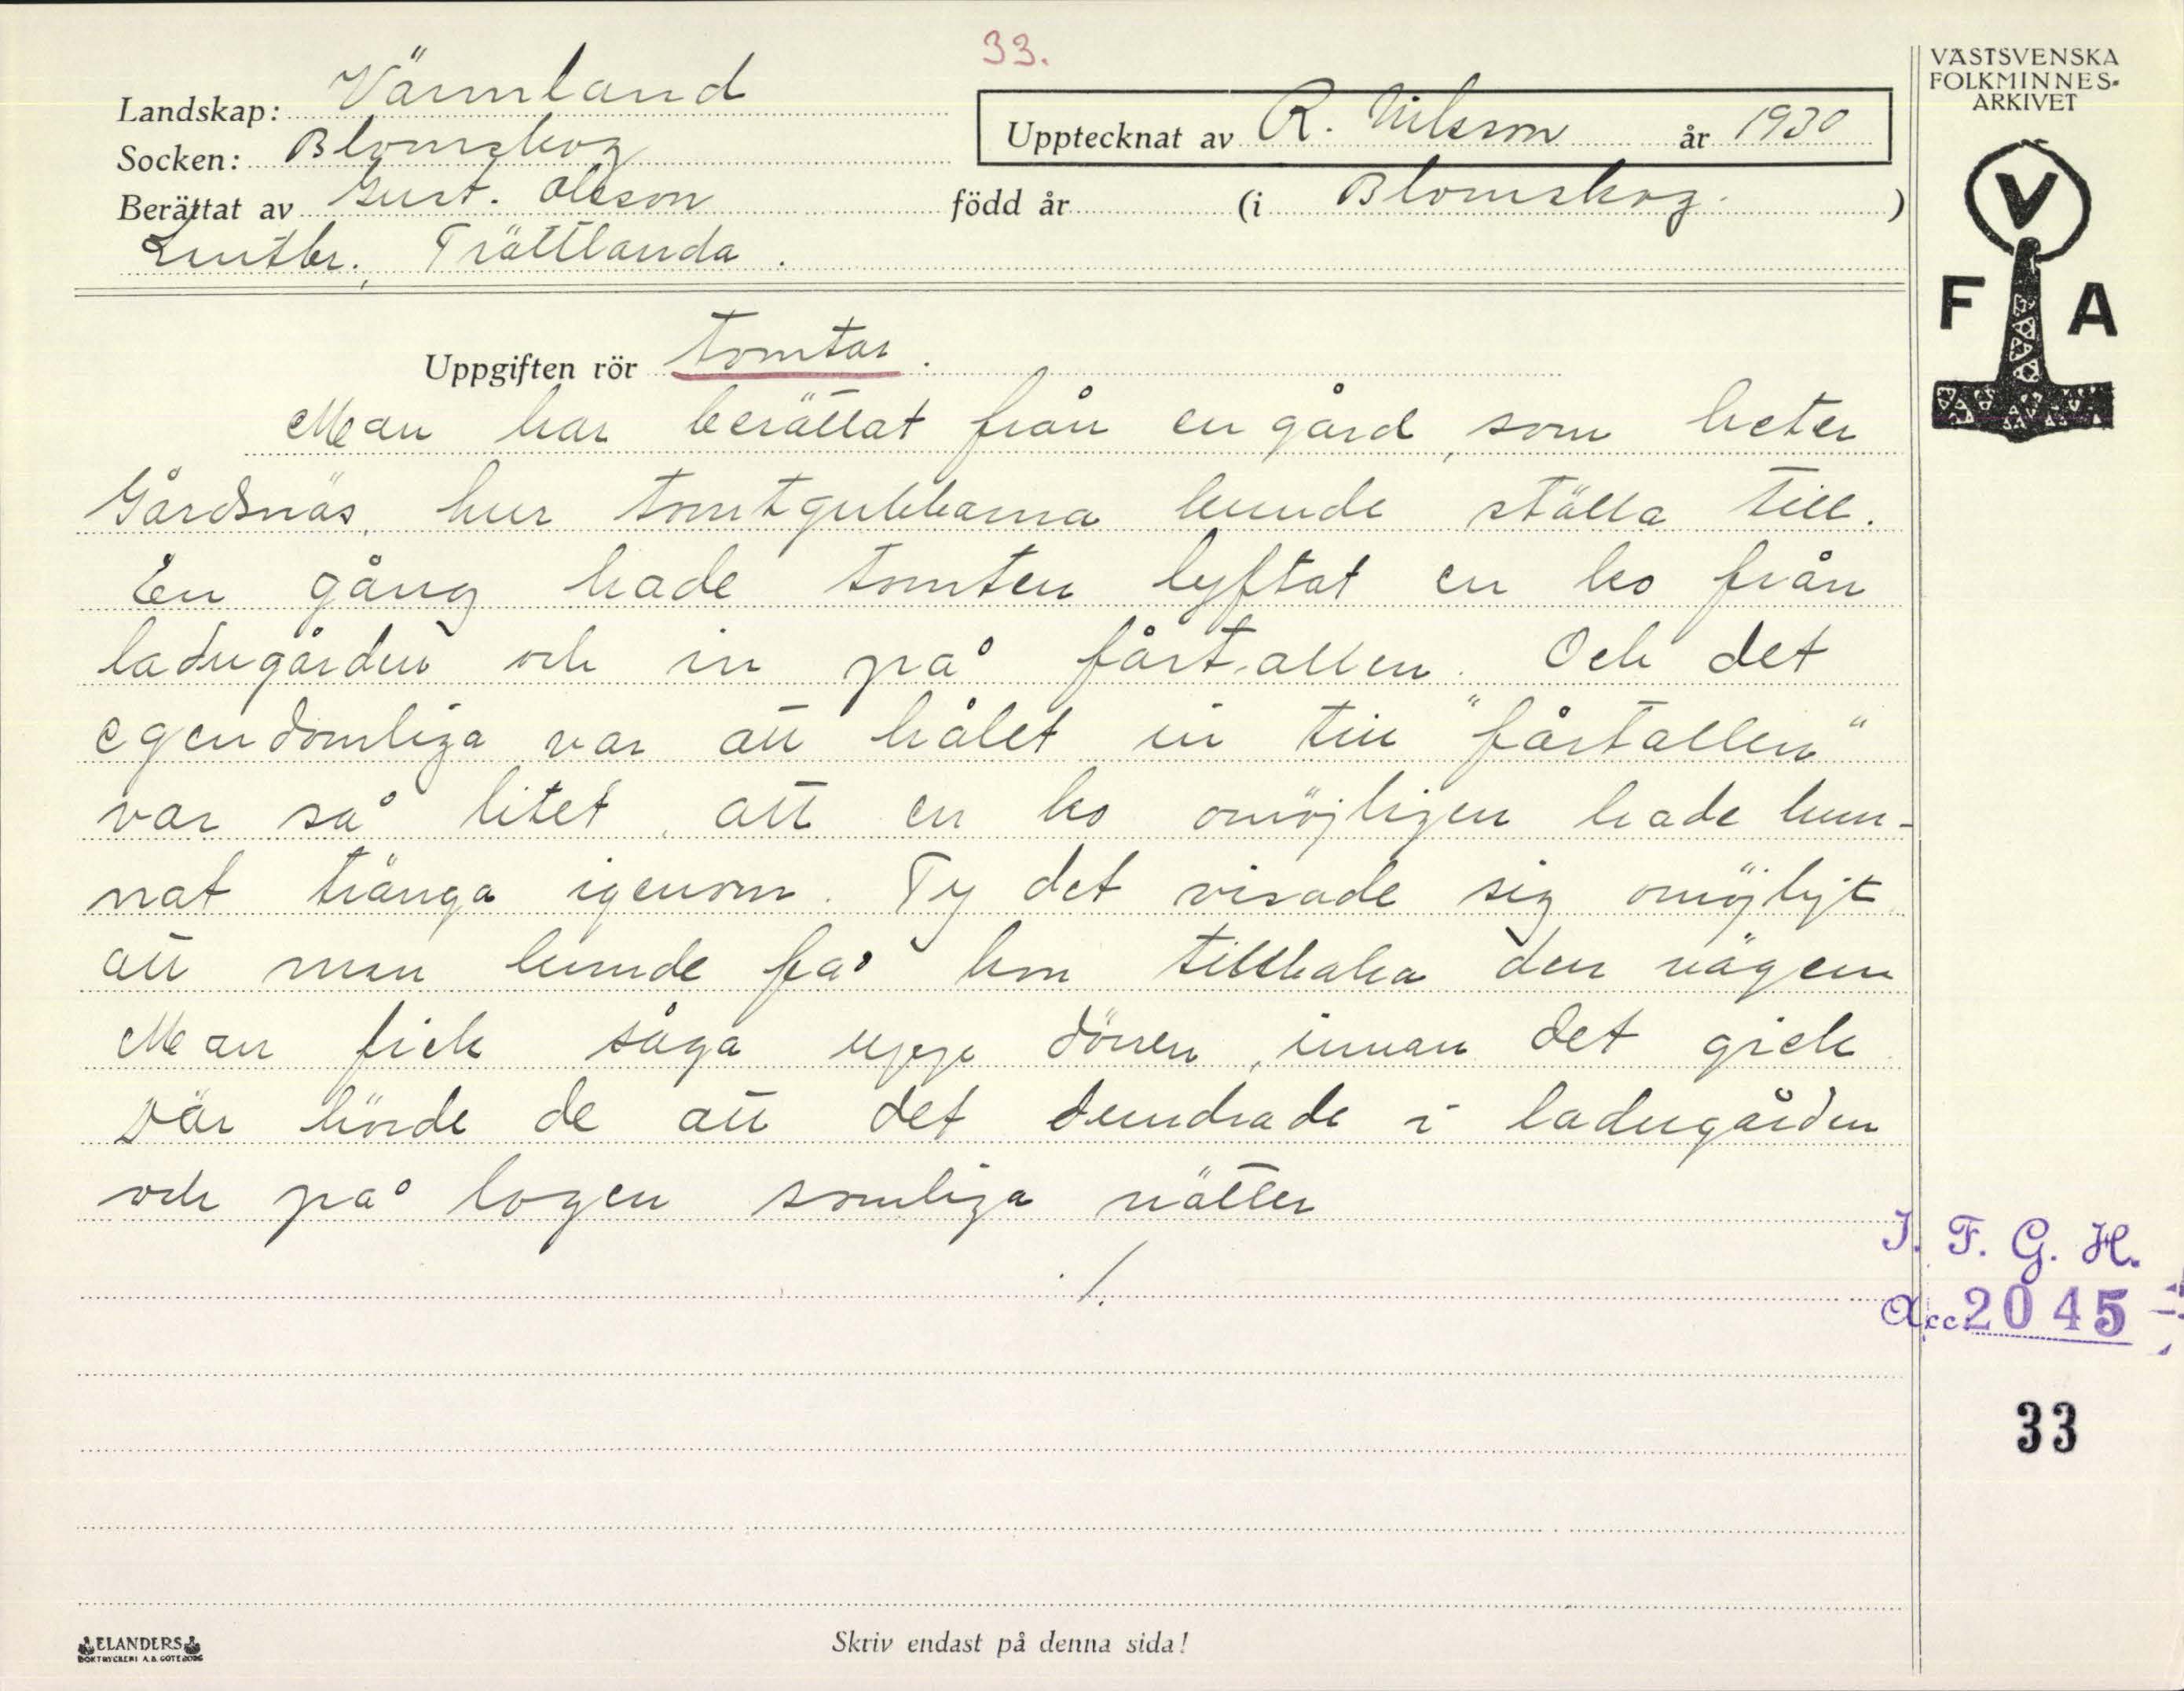 33.
VÄSTSVENSKA
FOLKMINNES-
ARKIVET
Landskap: Värmland
Upptecknat av R. Nilsson år 1930
Socken: Blomskog
Berättat av Gust. Olsson född år (i Blomskog.)
Lantbr. Trättlanda.
V
F A
Uppgiften rör Tomtar.
Man har berättat från en gård, som heter
Gårdsnäs, hur tomtgubbarna kunde ställa till.
En gång hade tomten lyftat en ko från
ladugården och in på fårtallen. Och det
egendomliga var att hålet in till "fårtallen"
var så litet, att en ko omöjligen hade kun-
nat tränga igenom. Ty det visade sig omöjligt
att man kunde få kon tillbaka den vägen
Man fick såga upp dörren, innan det gick
Där hörde de att det dundrade i ladugården
och på logen somliga nätter
./.
I. F. G. H.
Acc. 2045
33
ELANDERS
BOKTRYCKERI A.B. GÖTEBORG
Skriv endast på denna sida!